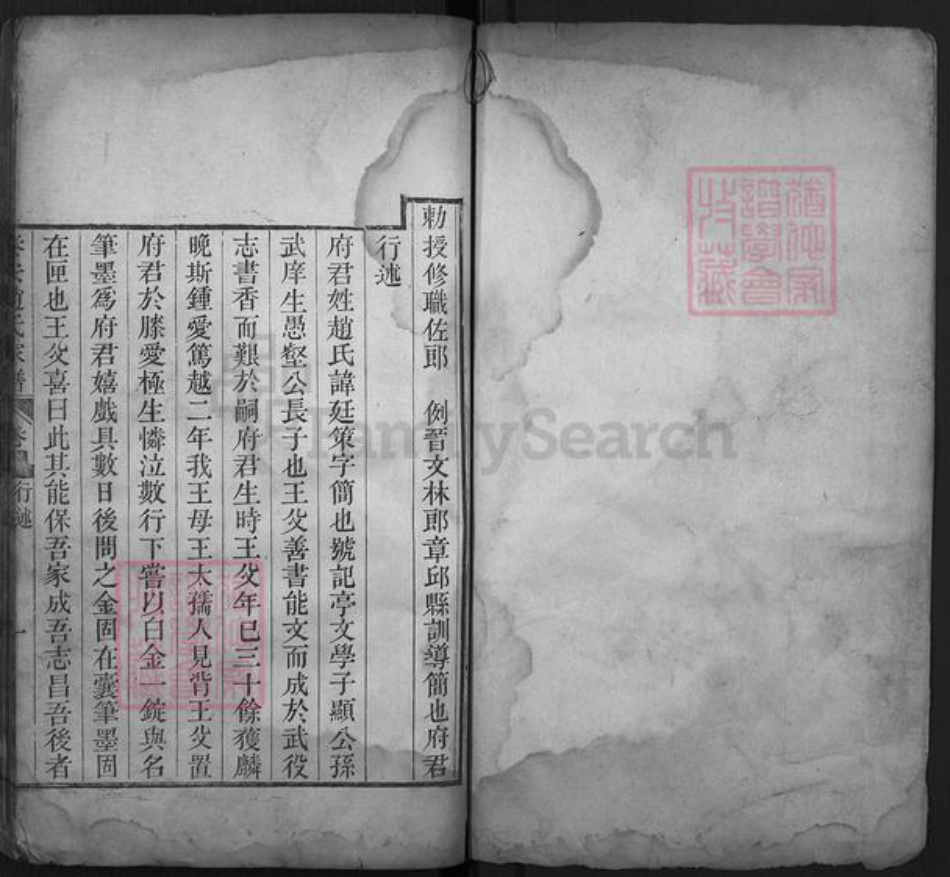 勅授修職佐郎 例晉文林郎章邱縣訓導簡也府君
行述
府君姓趙氏諱廷策字簡也號記亭文學子顯公孫
武庠生愚壑公長子也王父善書能文而成於武役
志書香而艱於嗣府君生時王父年已三十餘獲麟
晚斯鍾愛篤越二年我王母王太孺人見背王父置
府君於膝愛極生憐泣數行下嘗以白金一錠與名
筆墨爲府君嬉戲具數日後問之金固在囊筆墨固
在匣也王父喜曰此其能保吾家成吾志昌吾後者
趙氏家譜 卷 行述 一
譜學會
收藏
FamilySearch